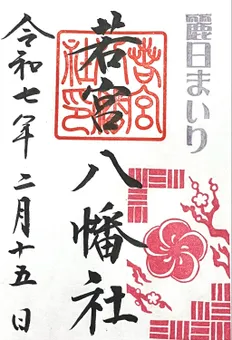 麗日まいり
若宮八幡社
令和七年二月十五日